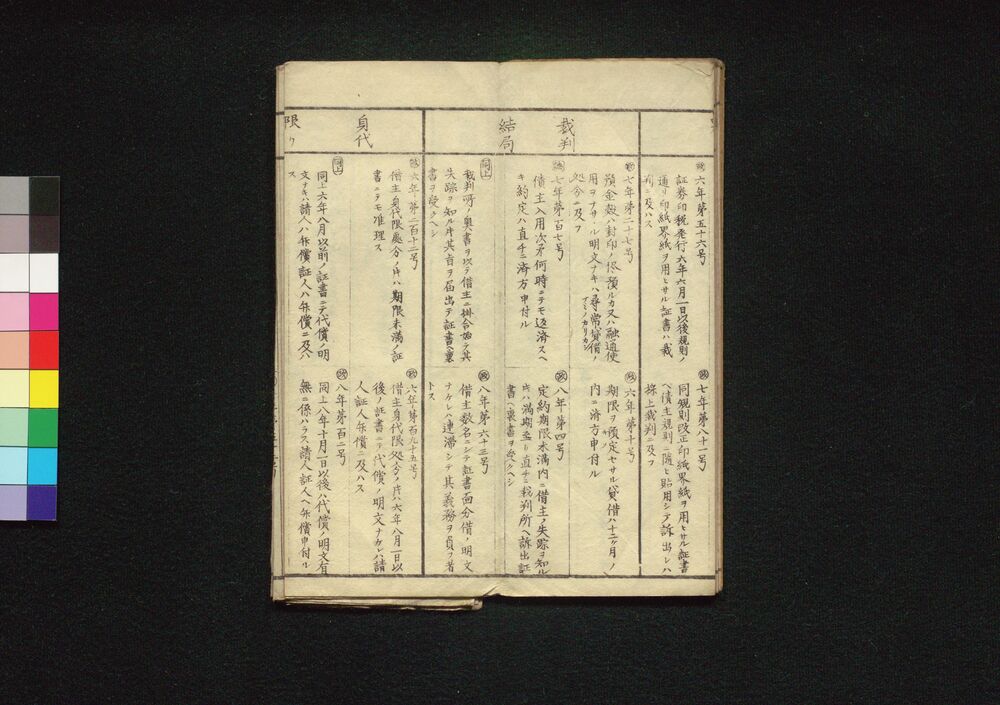 裁判
結局
身代
限リ
六年第五十六号
証券印税発行六年六月一日以後規則ノ
通リ印紙界紙ヲ用ヒサル証書ハ裁
判ニ及ハス
七年第八十一号
同規則改正印紙界紙ヲ用ヒサル証書
ヘ債主規則ニ随ヒ貼用シテ訴出レハ
採上裁判ニ及フ
七年第二十七号
預金穀ハ封印ノ侭預ルカ又ハ融通使
用ヲナサル明文ナキハ尋常貸借ノ
処分ニ及フ
六年第十号
期限ヲ預定セサル貸借ハ十二ヶ月ノ
内ニ済方申付ル
七年第百七号
債主入用次第何時ニテモ返済スヘ
キ約定ハ直チニ済方申付ル
八年第四号
定約期限未満内ニ借主ノ失踪ヲ知ル
片ハ満期至リ直チニ裁判所ヘ訴出証
書ヘ裏書ヲ受クヘシ
同上
裁判所ノ奥書ヲ以テ借主ニ掛合始テ其
失踪ヲ知ル片其旨ヲ届出テ証書ヘ裏
書ヲ受クヘシ
八年第六十三号
借主数名ニシテ証書面分借ノ明文
ナケレハ連滞シテ其義務ヲ負フ者
トス
六年第二百十二号
借主身代限処分ノ片ハ期限未満ノ証
書ニテモ准理ス
六年第百九十五号
借主身代限処分ノ片ハ六年八月一日以
後ノ証書ニテ代償ノ明文ナケレハ請
人証人弁償ニ及ハス
同上
同上六年八月以前ノ証書ニテ代償ノ明
文ナキハ請人ハ弁償証人ハ弁償ニ及ハ
ス
八年第百二号
同上八年十月一日以後ハ代償ノ明文有
無ニ係ハラス請人証人ヘ弁償申付ル